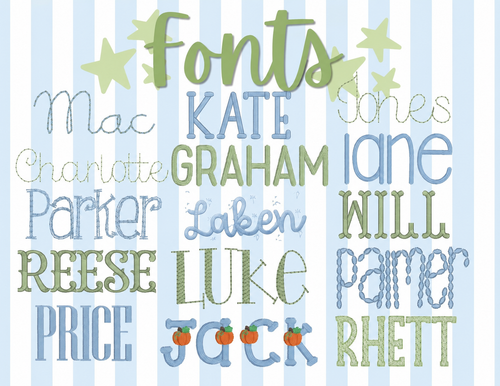 Fonts
Mac
KATE
Jones
Charlotte
GRAHAM
lane
Parker
Laken
WILL
REESE
LUKE
palmer
PRICE
Jack
RHETT